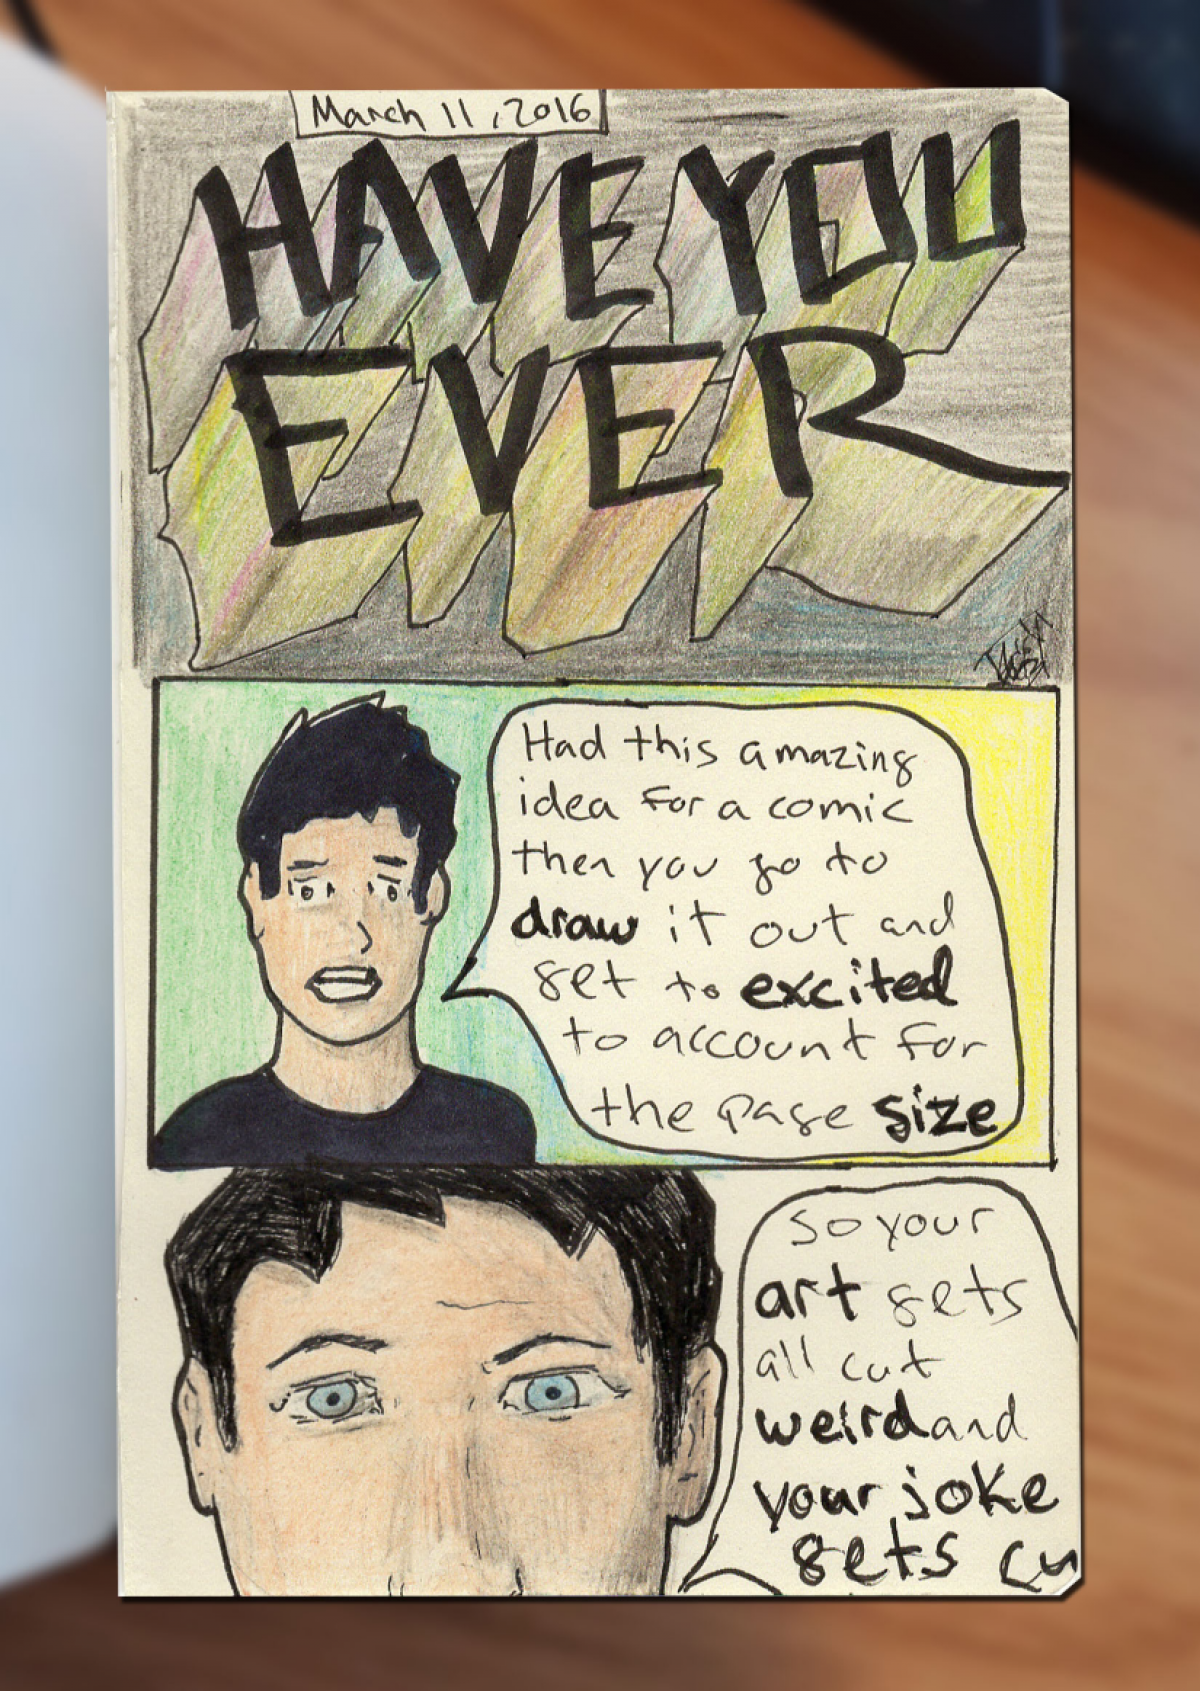 March 11, 2016
HAVE YOU
EVER
Had this amazing
idea for a comic
then you go to
draw it out and
get to excited
to account for
the page size
So your
art gets
all cut
weird and
your joke
gets cu